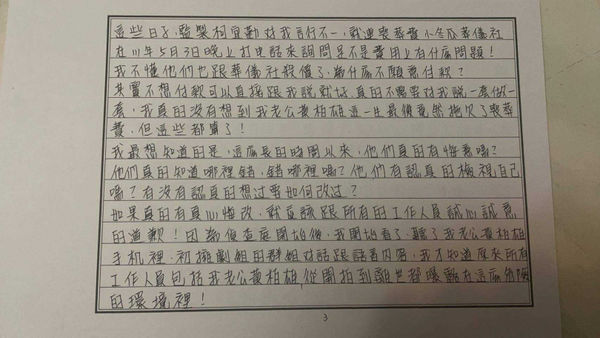 這些日子,監製柯宜勤對我言行不一,就連喪葬費小冬瓜葬儀社
在111年5月3日晚上打電話來詢問是不是費用上有什麼問題!
我不懂他們也跟葬儀社殺價了,為什麼不願意付款?
其實不想付款可以直接跟我說就好,真的不需要對我說一套做一
套,我真的沒有想到我老公黃柏雄這一生最後竟然拖欠了喪葬
費,但這些都算了!
我最想知道的是,這麼長的時間以來,他們真的有悔意嗎?
他們真的知道哪裡錯,錯哪裡嗎?他們有認真的檢視自己
嗎?有沒有認真的想過要如何改過?
如果真的有真心悔改,就應該跟所有的工作人員誠心誠意
的道歉!因為偵查庭開始後,我開始看了、聽了我老公黃柏雄
手機裡,初擬劇組的群組對話跟語音內容,我才知道原來所有
工作人員包括我老公黃柏雄,從開拍到離世都壟罩在這麼危險
的環境裡!
3